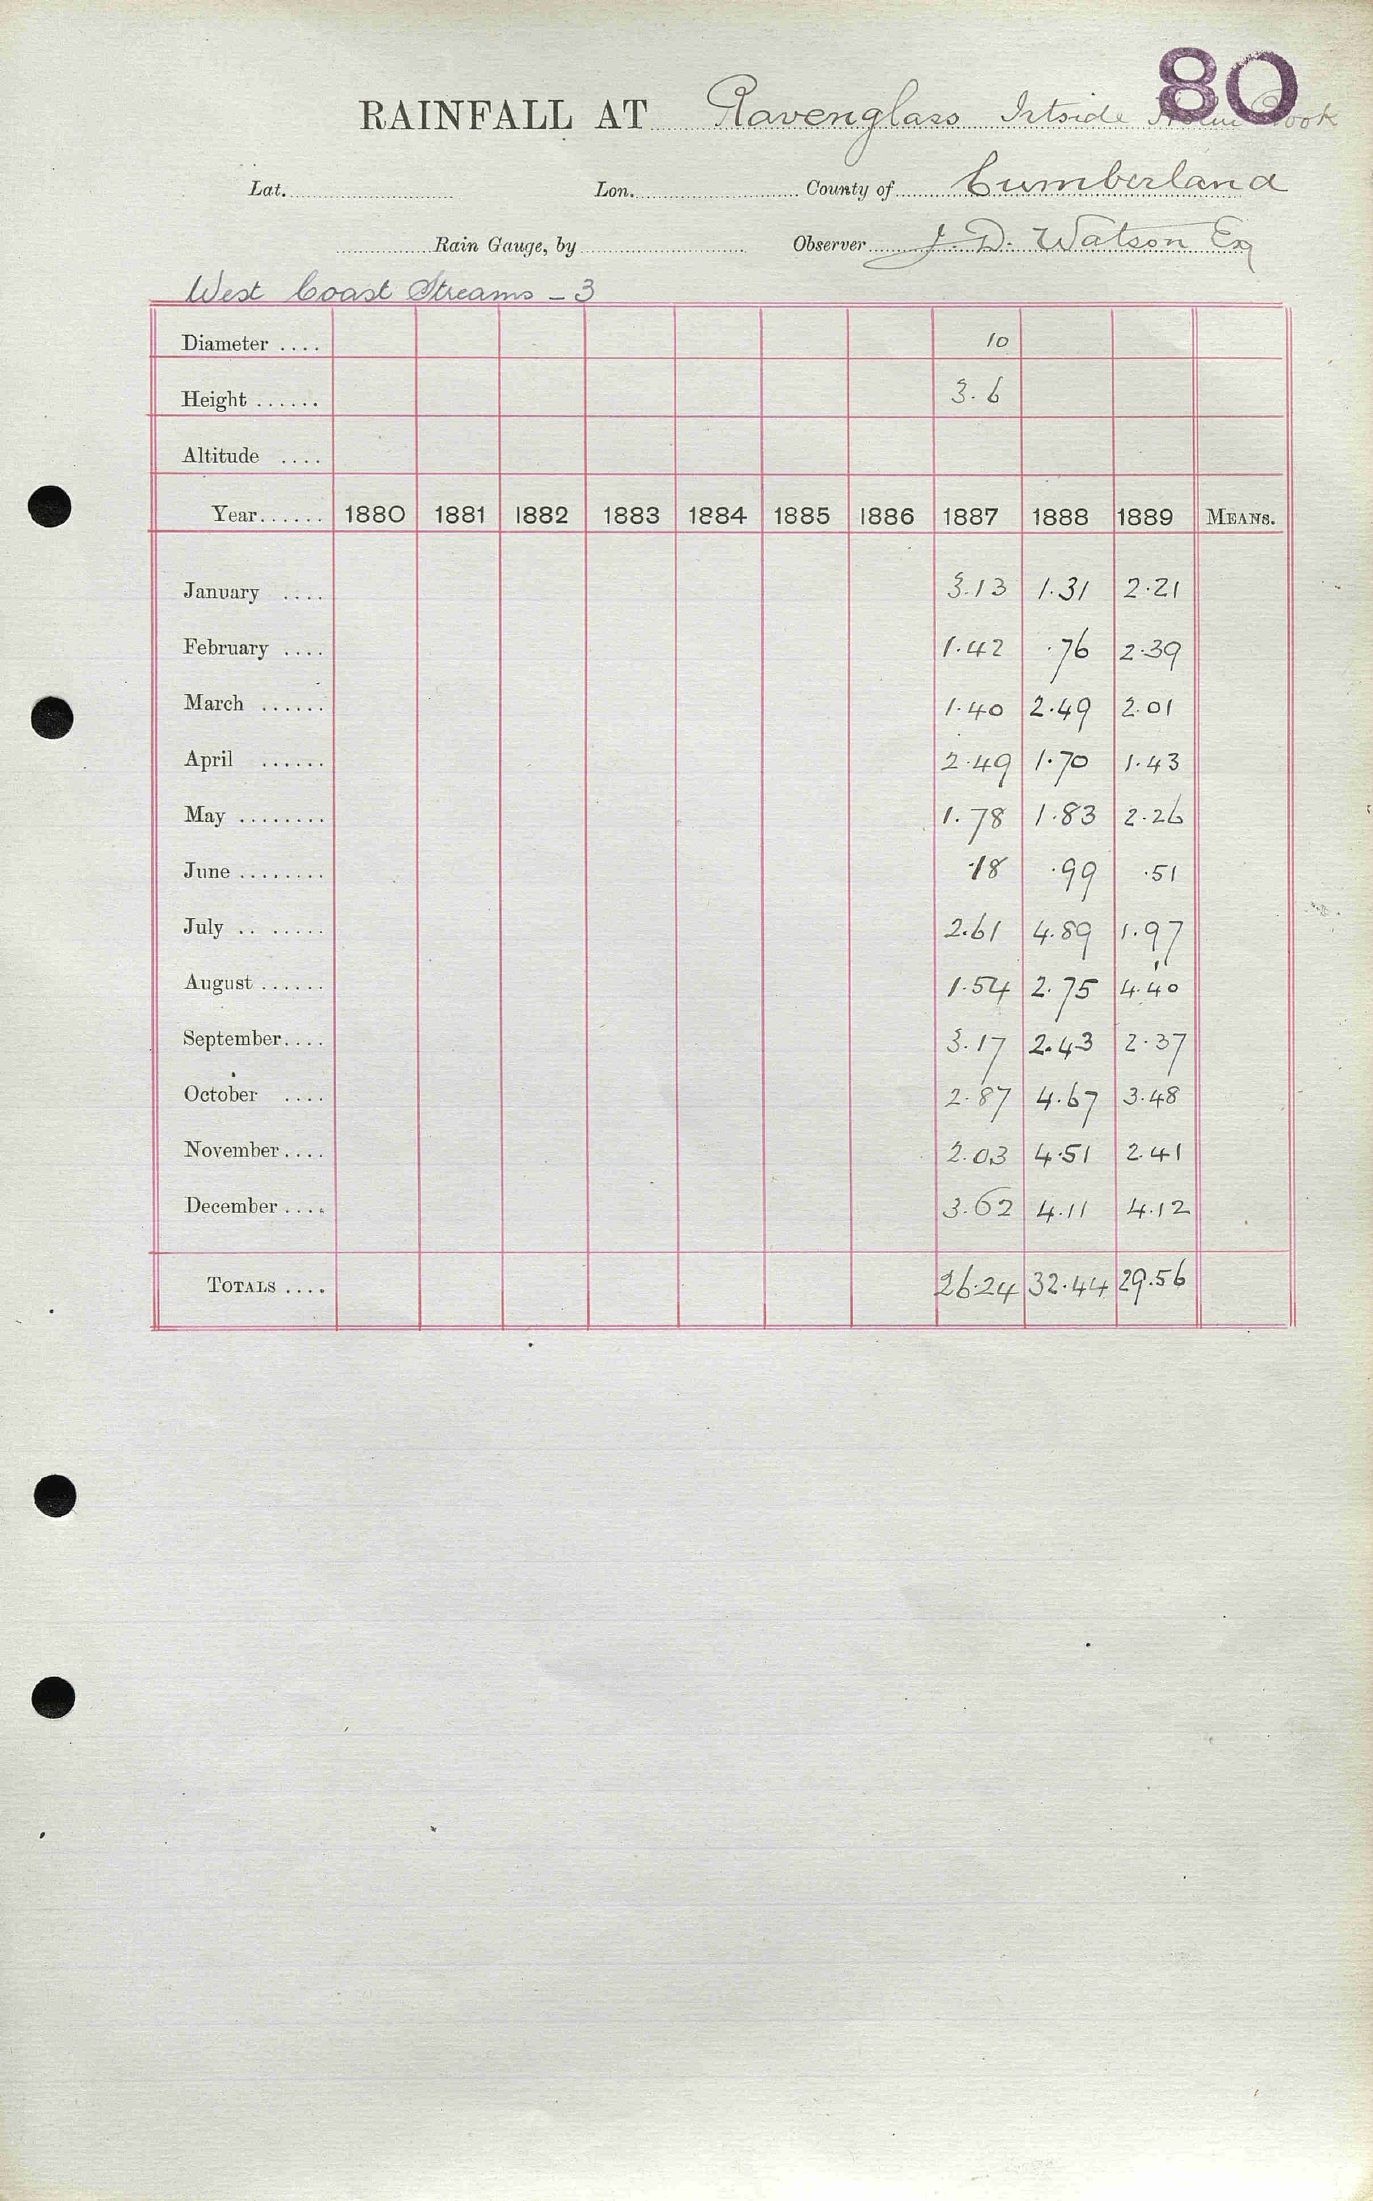 80
RAINFALL AT Ravenglass Irtside Holm Rook
Lat. Lon. County of Cumberland
Rain Gauge, by Observer J. D. Watson Esq
West Coast Streams - 3
Diameter .... 10
Height ...... 3.6
Altitude ....
Year...... 1880 1881 1882 1883 1884 1885 1886 1887 1888 1889 MEANS.
January .... 3.13 1.31 2.21
February .... 1.42 .76 2.39
March ...... 1.40 2.49 2.01
April ...... 2.49 1.70 1.43
May ........ 1.78 1.83 2.26
June ........ .18 .99 .51
July .. ...... 2.61 4.89 1.97
August ...... 1.54 2.75 4.40
September.... 3.17 2.43 2.37
October .... 2.87 4.67 3.48
November.... 2.03 4.51 2.41
December.... 3.62 4.11 4.12
TOTALS .... 26.24 32.44 29.56